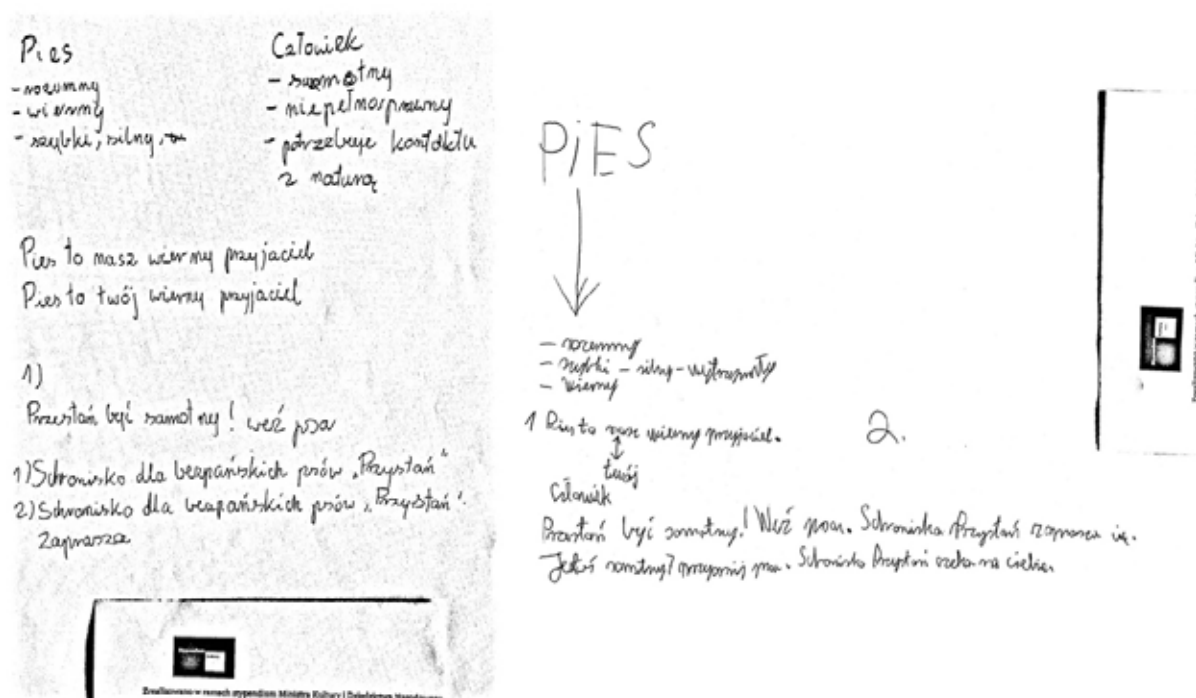 Pies
- rozumny
- wierny
- szybki, silny,
Człowiek
- samotny
- niepełnosprawny
- potrzebuje kontaktu
z naturą
Pies to nasz wierny przyjaciel
Pies to twój wierny przyjaciel
1)
Przestań być samotny! weź psa
1) Schronisko dla bezpańskich psów „Przystań"
2) Schronisko dla bezpańskich psów „Przystań".
Zaprasza
Zrealizowano w ramach stypendium Ministra Kultury i Dziedzictwa
PiES
- rozumny
- szybki - silny - wytrzymały
- wierny
1 Pies to nasz wierny przyjaciel.
twój
2.
Człowiek
Przestań być samotny! Weź psa. Schroniska Przystań zaprasza
Jesteś samotny? przygarnij psa. Schronisko Przystań czeka na ciebie.